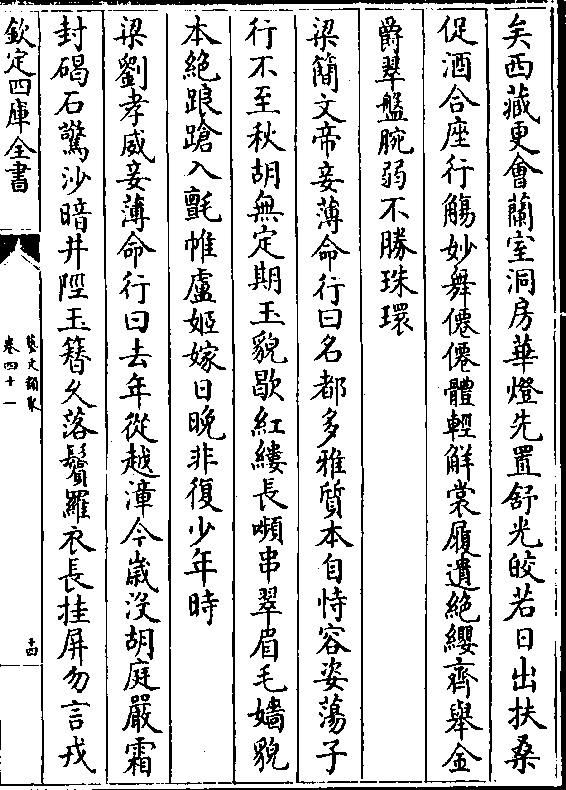 矣西藏更會蘭室洞房華燈先置舒光皎若日出扶桑
促酒合座行觴妙舞僊僊體輕解裳履遺絶纓齊舉金
爵翠盤腕弱不勝珠環
梁簡文帝妾薄命行曰名都多雅質本自恃容姿蕩子
行不至秋胡無定期玉貌歇紅縷長嚬串翠眉毛嬙貌
本絶踉蹌入氈帷盧姬嫁日晚非復少年時
梁劉孝威妾薄命行曰去年從越漳今歲沒胡庭嚴霜
封碣石驚沙暗井陘玉簪久落鬢羅衣長挂屏勿言戎
欽定四庫全書
藝文類聚
卷四十一
十四